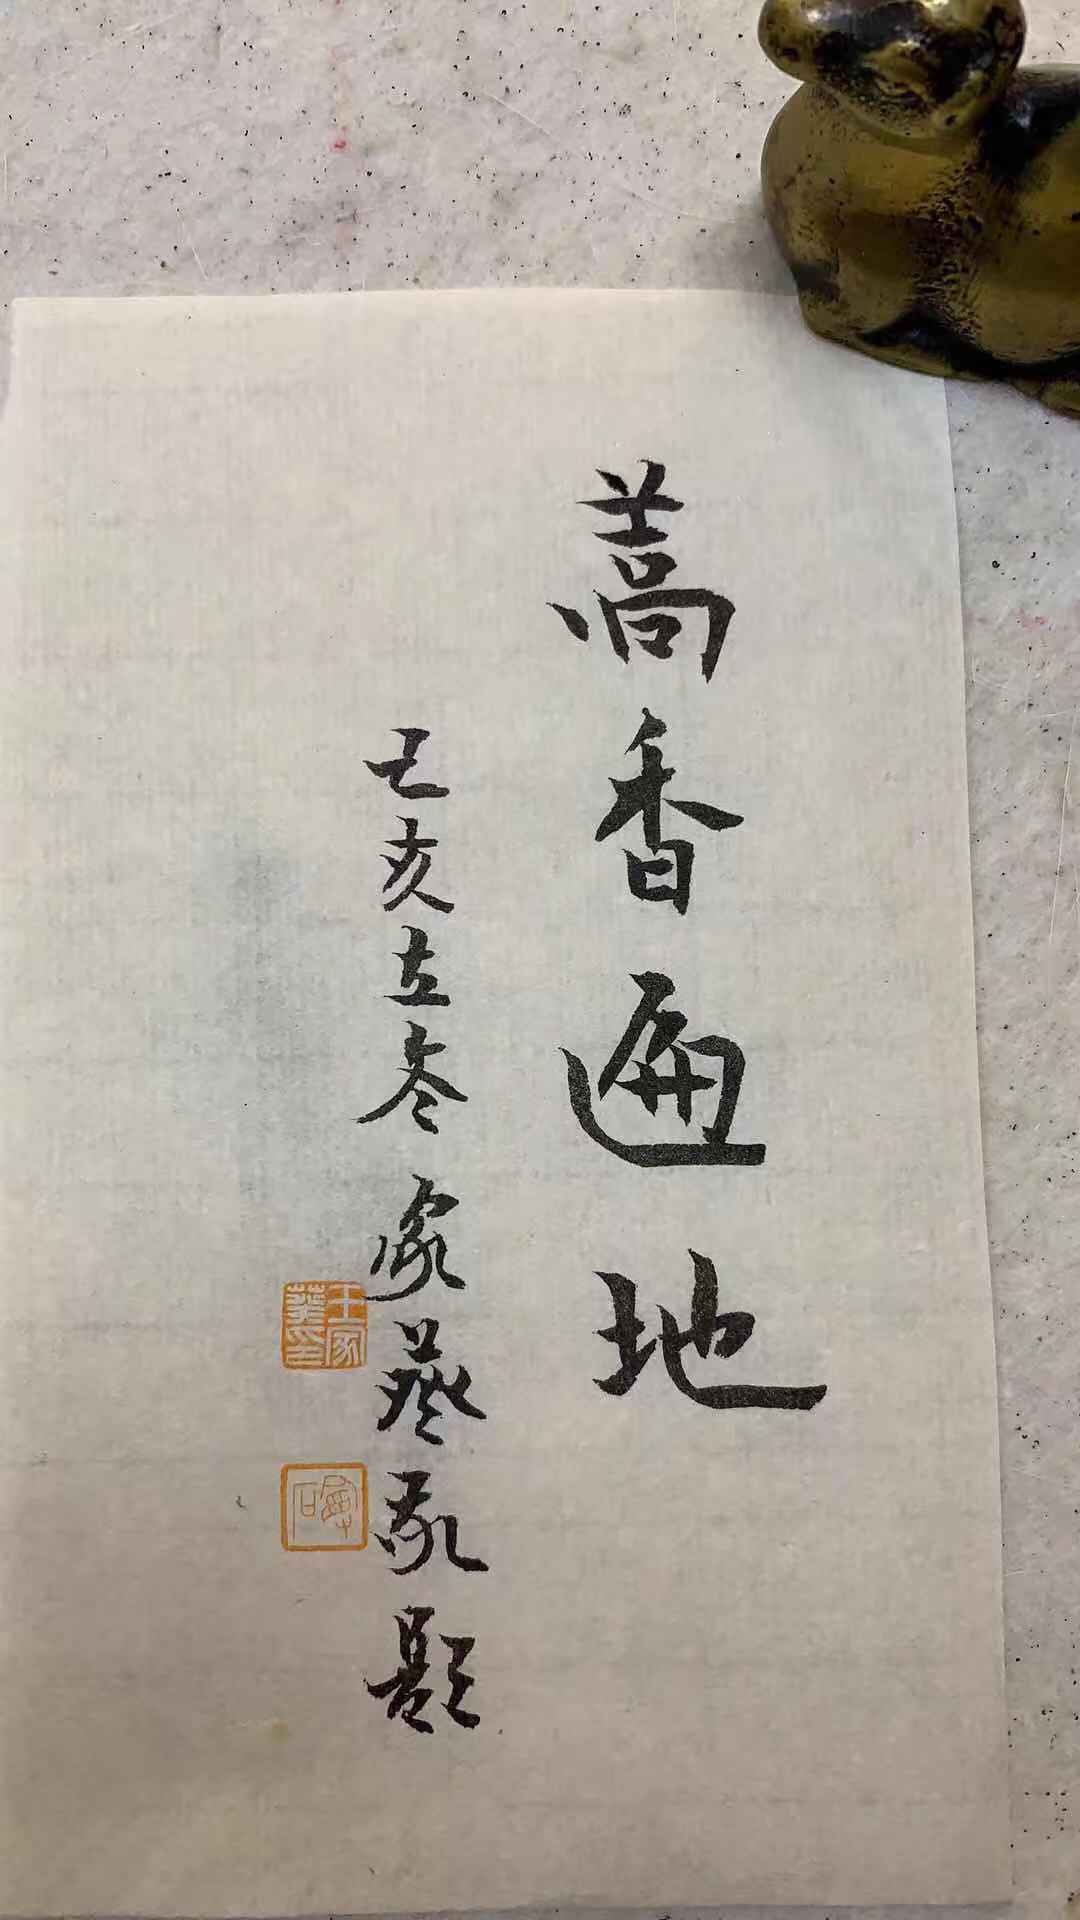 蒿香遍地
己亥立冬 家葵敬題
王家葵印